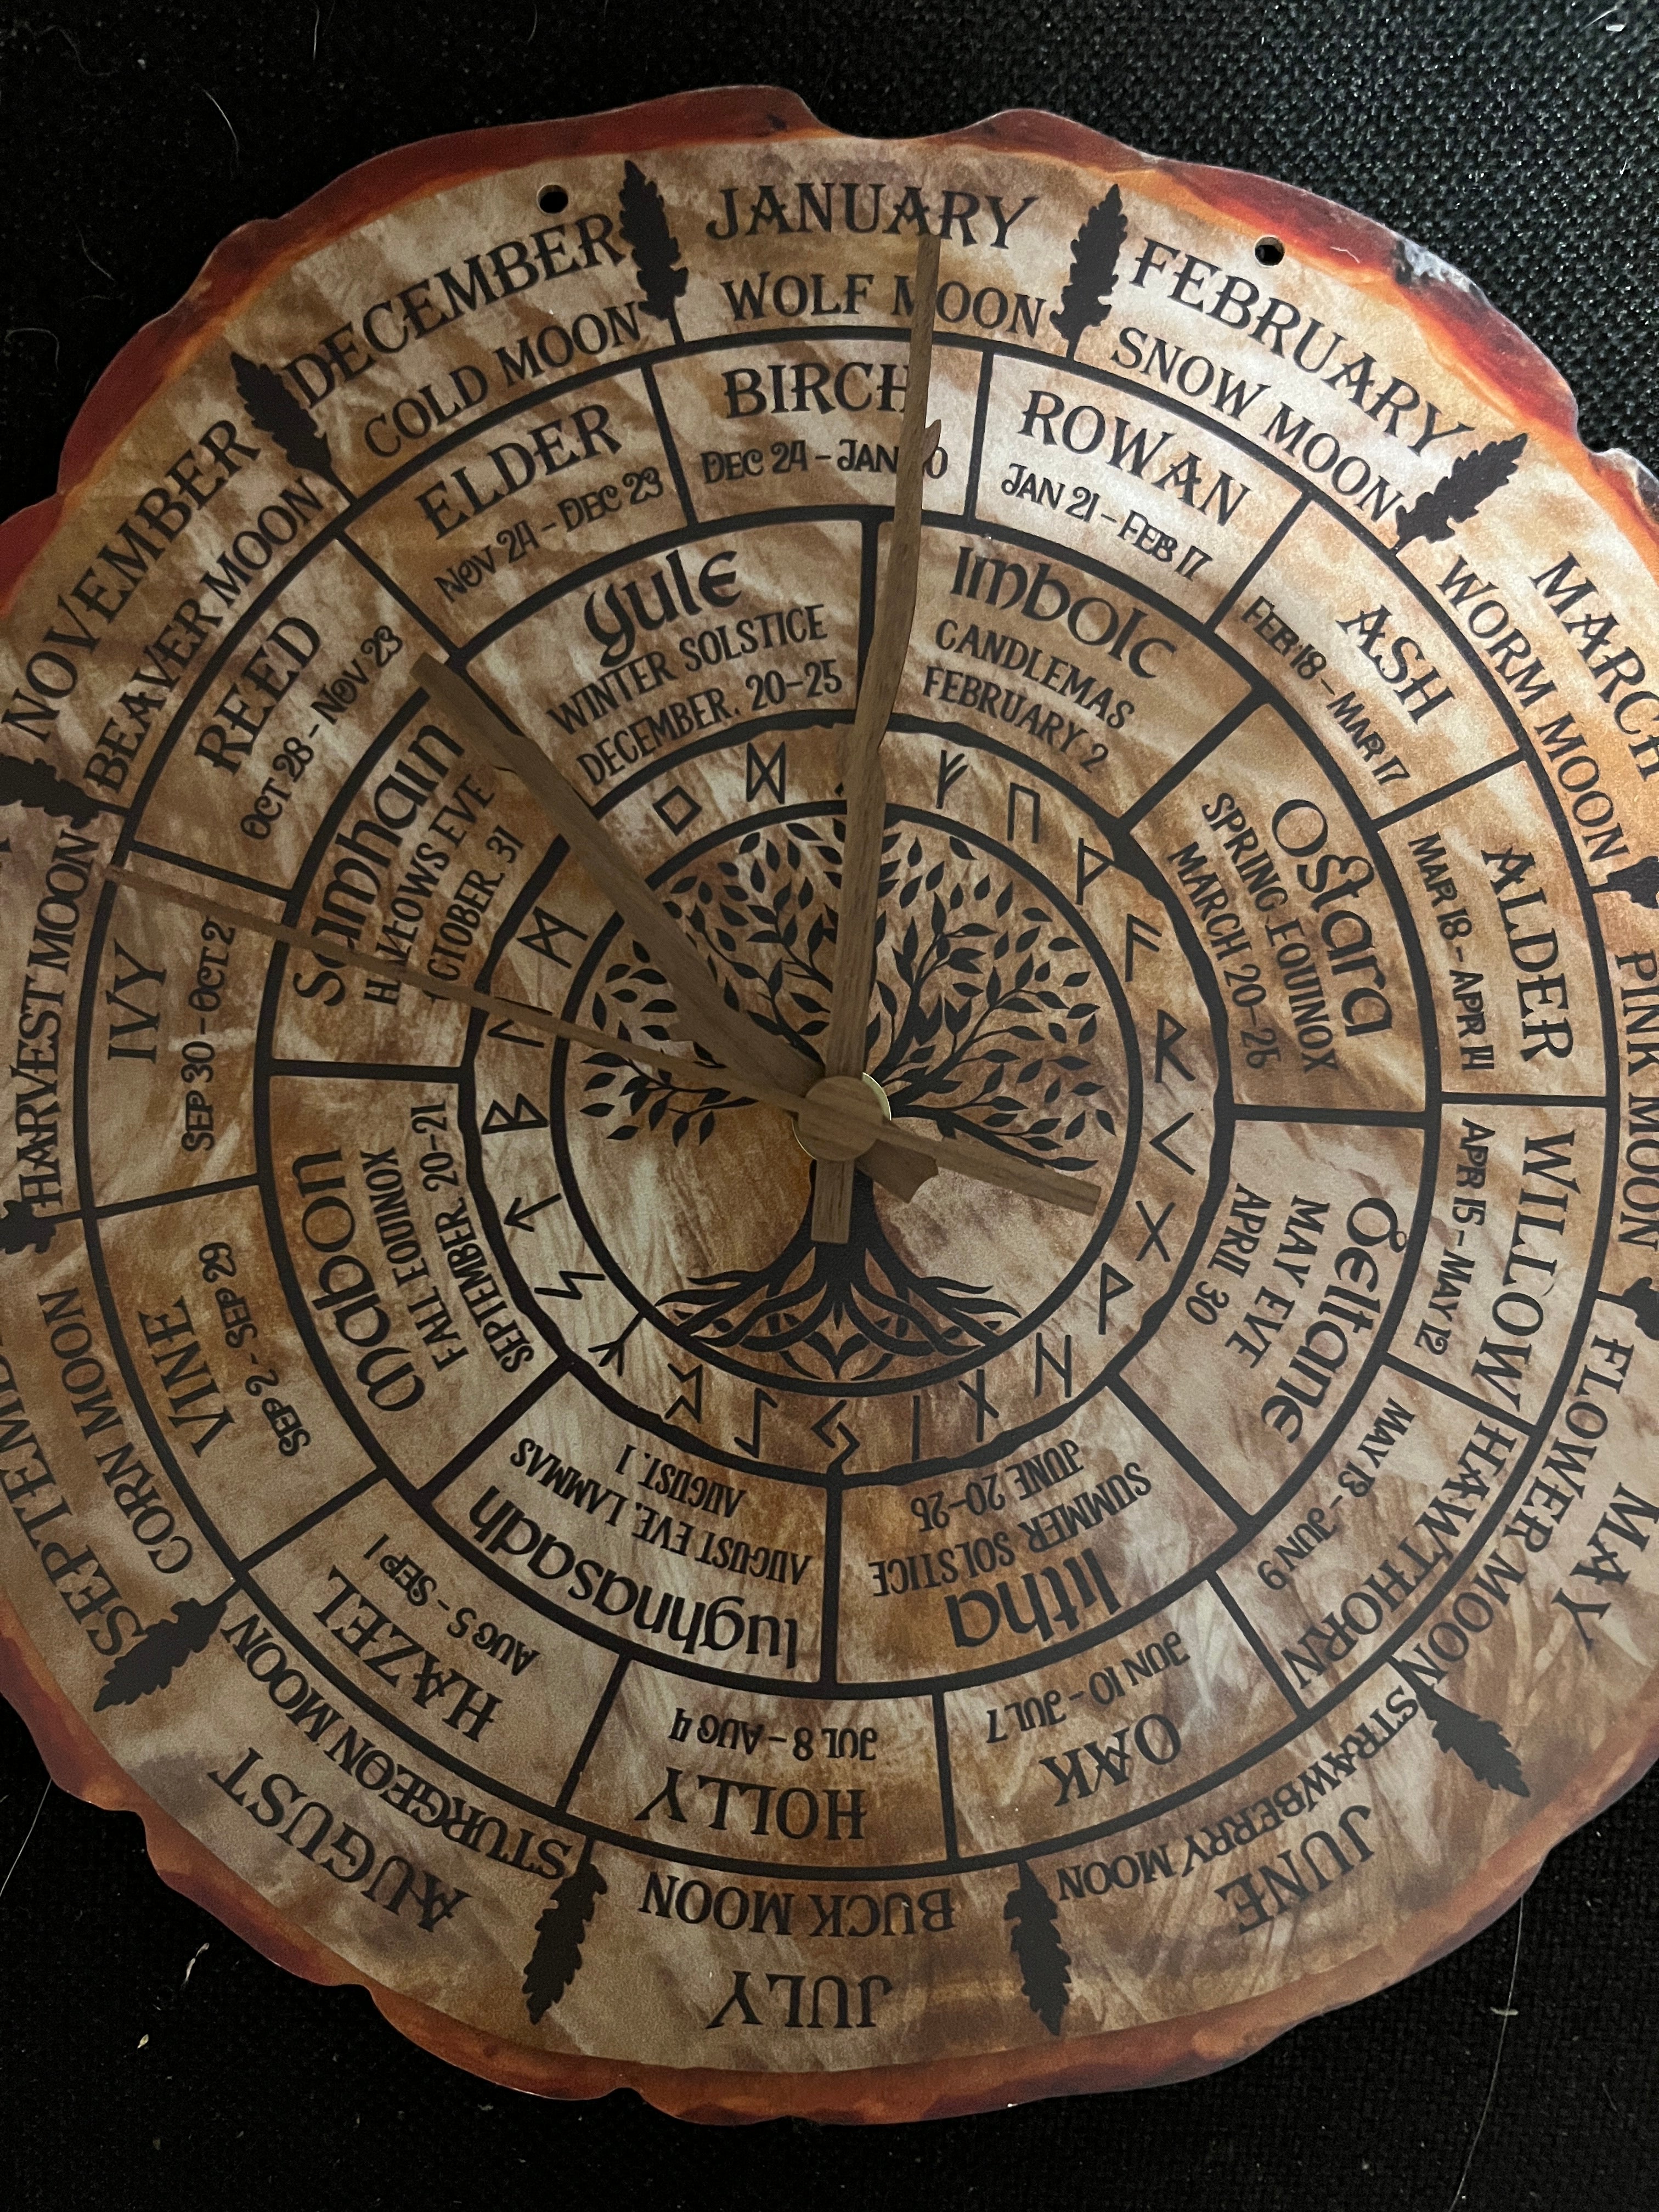 JANUARY
WOLF MOON
FEBRUARY
SNOW MOON
MARCH
WORM MOON
PINK MOON
MAY
FLOWER MOON
JUNE
STRAWBERRY MOON
JULY
BUCK MOON
AUGUST
STURGEON MOON
CORN MOON
HARVEST MOON
NOVEMBER
BEAVER MOON
DECEMBER
COLD MOON
BIRCH
DEC 24 - JAN
ROWAN
JAN 21 - FEB 17
ASH
FEB 18 - MAR 17
ALDER
MAR 18 - APR 14
WILLOW
APR 15 - MAY 12
HAWTHORN
MAY 13 - JUN 9
OAK
JUN 10 - JUL 7
HOLLY
JUL 8 - AUG 4
HAZEL
AUG 5 - SEP 1
VINE
SEP 2 - SEP 29
IVY
SEP 30 - OCT 2
REED
OCT 28 - NOV 23
ELDER
NOV 24 - DEC 23
Yule
WINTER SOLSTICE
DECEMBER. 20-25
Imbolc
CANDLEMAS
FEBRUARY 2
Ostara
SPRING EQUINOX
MARCH 20-25
Beltane
MAY EVE
APRIL 30
litha
SUMMER SOLSTICE
JUNE 20-25
lughnasadh
AUGUST EVE, LAMMAS
AUGUST. 1
Mabon
FALL EQUINOX
SEPTEMBER. 20-21
Samhain
EVE
31
ᚠ ᚢ ᚦ ᚨ ᚱ ᚲ ᚷ ᚹ ᚺ ᚾ ᛁ ᛃ ᛇ ᛈ ᛉ ᛋ ᛏ ᛒ ᛗ ᛜ ᛞ